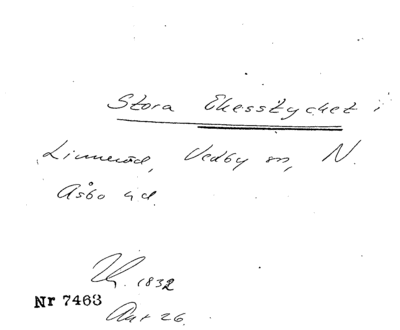 Stora Ekesstycket i
Linneröd, Vedby sn, N.
Åsbo hd.
1832
Nr 7463
Ant 26.